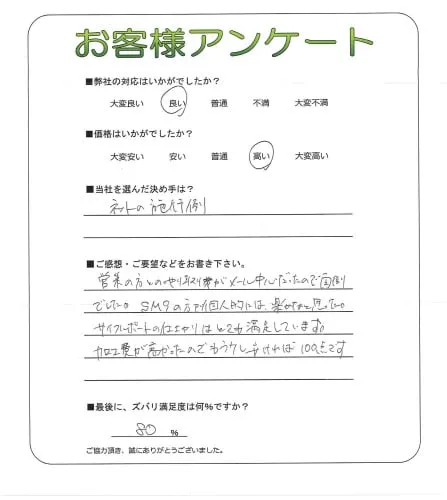 お客様アンケート
■弊社の対応はいかがでしたか？
大変良い 良い 普通 不満 大変不満
■価格はいかがでしたか？
大変安い 安い 普通 高い 大変高い
■当社を選んだ決め手は？
ネットの施行例
■ご感想・ご要望などをお書き下さい。
営業の方とのやり取りがメール中心だったので面倒
でした。SMSの方が個人的には楽かなと思った。
サイクルポートの仕上がりはとても満足しています。
加工費が高かったのでもう少し安ければ100点です
■最後に、ズバリ満足度は何％ですか？
80 ％
ご協力頂き、誠にありがとうございました。